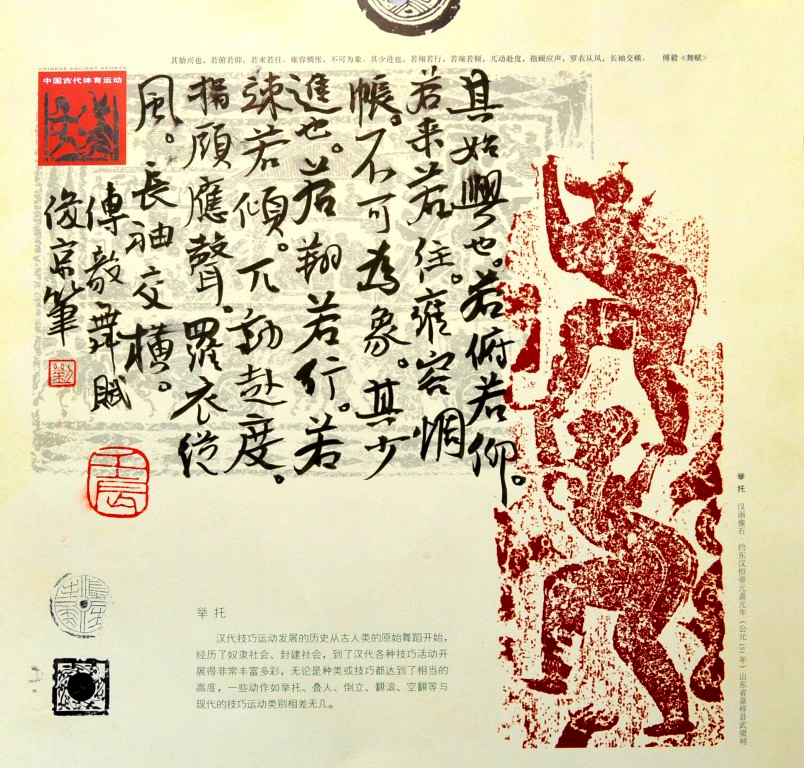 CHINESE ANCIENT SPORTS
中国古代体育运动
其始兴也，若俯若仰，若来若往。雍容惆怅，不可为象。其少进也，若翔若行，若竦若倾，兀动赴度，指顾应声，罗衣从风，长袖交横。 傅毅《舞赋》
其始興也。若俯若仰。
若来若往。雍容惆
帳。不可為象。其少
進也。若翔若行。若
竦若傾。兀動赴度。
指顧應聲。羅衣從
風。長袖交横。
傅毅舞賦
俊京筆
劉
壬辰
举托 汉画像石·约东汉桓帝元嘉元年（公元151年）山东省嘉祥县武梁祠
举托
汉代技巧运动发展的历史从古人类的原始舞蹈开始，
经历了奴隶社会、封建社会，到了汉代各种技巧活动开
展得非常丰富多彩，无论是种类或技巧都达到了相当的
高度，一些动作如举托、叠人、倒立、翻滚、空翻等与
现代的技巧运动类别相差无几。